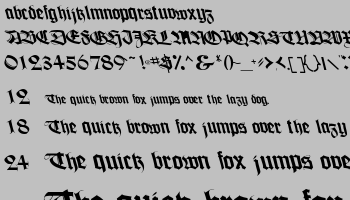 abcdefghijklmnopqrstuvwxyz
ABCDEFGHIJKLMNOPQRSTUVWX
0123456789
12 The quick brown fox jumps over the lazy dog.
18 The quick brown fox jumps over the lazy
24 The quick brown fox jumps ove
The quick brown fox